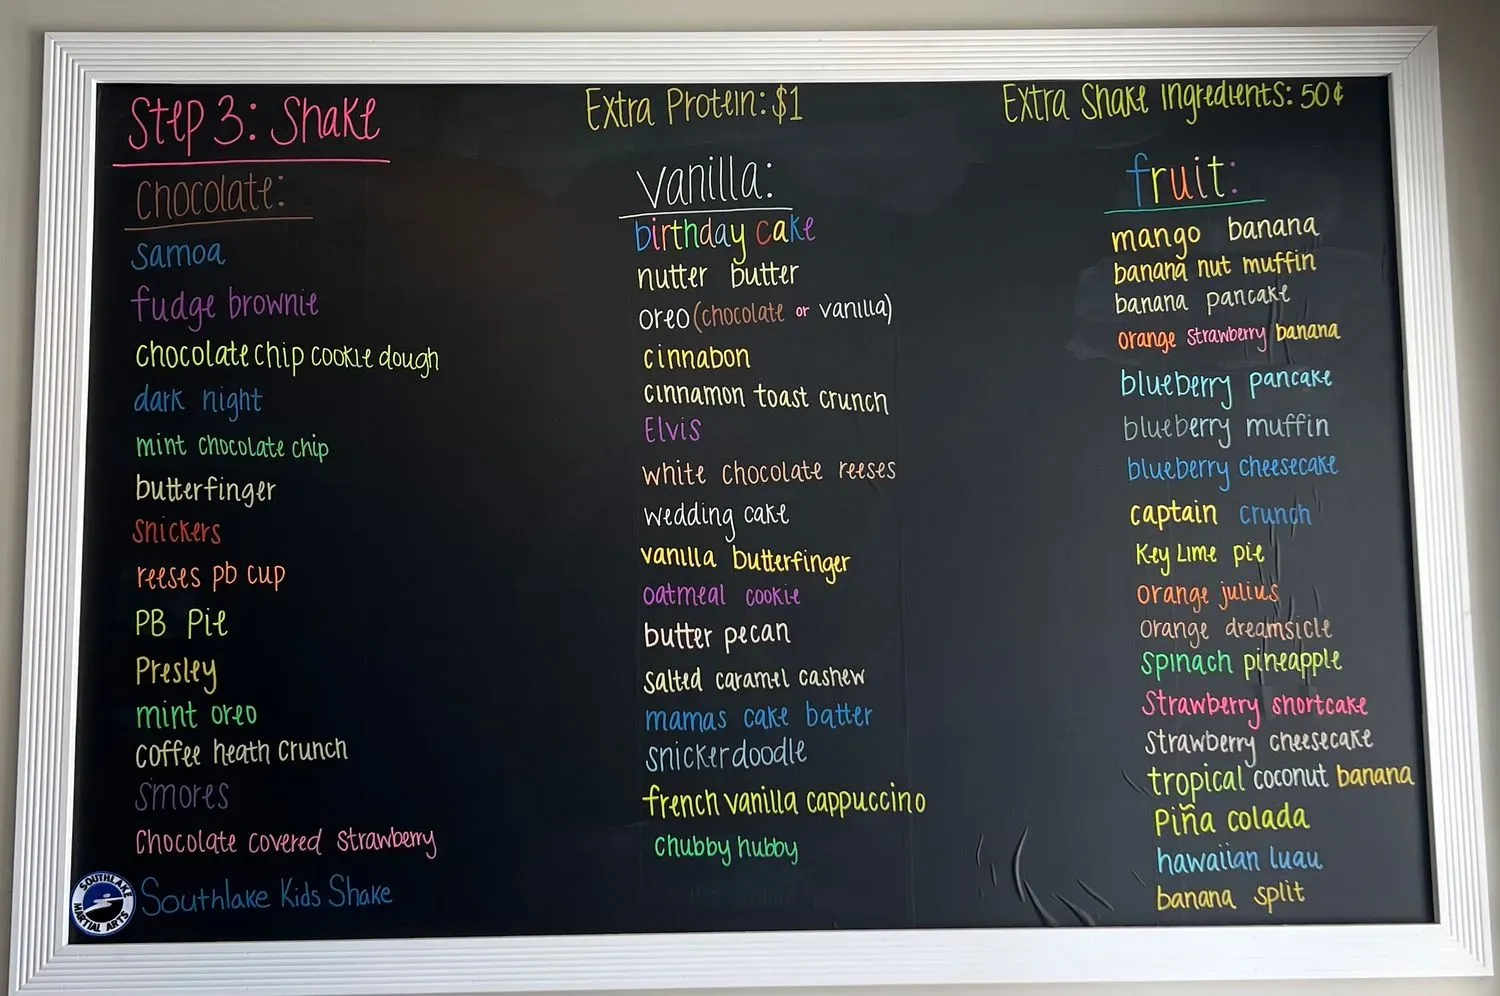 Step 3: Shake
Extra Protein: $1
Extra Shake Ingredients: 50¢
Chocolate:
samoa
fudge brownie
chocolate chip cookie dough
dark night
mint chocolate chip
butterfinger
snickers
reeses pb cup
PB Pie
Presley
mint oreo
coffee heath crunch
smores
Chocolate covered strawberry
Southlake Kids Shake
SOUTHLAKE
MARTIAL ARTS
vanilla:
birthday cake
nutter butter
oreo (chocolate or vanilla)
cinnabon
cinnamon toast crunch
Elvis
white chocolate reeses
wedding cake
vanilla butterfinger
oatmeal cookie
butter pecan
salted caramel cashew
mamas cake batter
snickerdoodle
french vanilla cappuccino
chubby hubby
fruit:
mango banana
banana nut muffin
banana pancake
orange strawberry banana
blueberry pancake
blueberry muffin
blueberry cheesecake
captain crunch
Key Lime pie
orange julius
orange dreamsicle
spinach pineapple
Strawberry shortcake
Strawberry cheesecake
tropical coconut banana
Piña colada
hawaiian luau
banana split